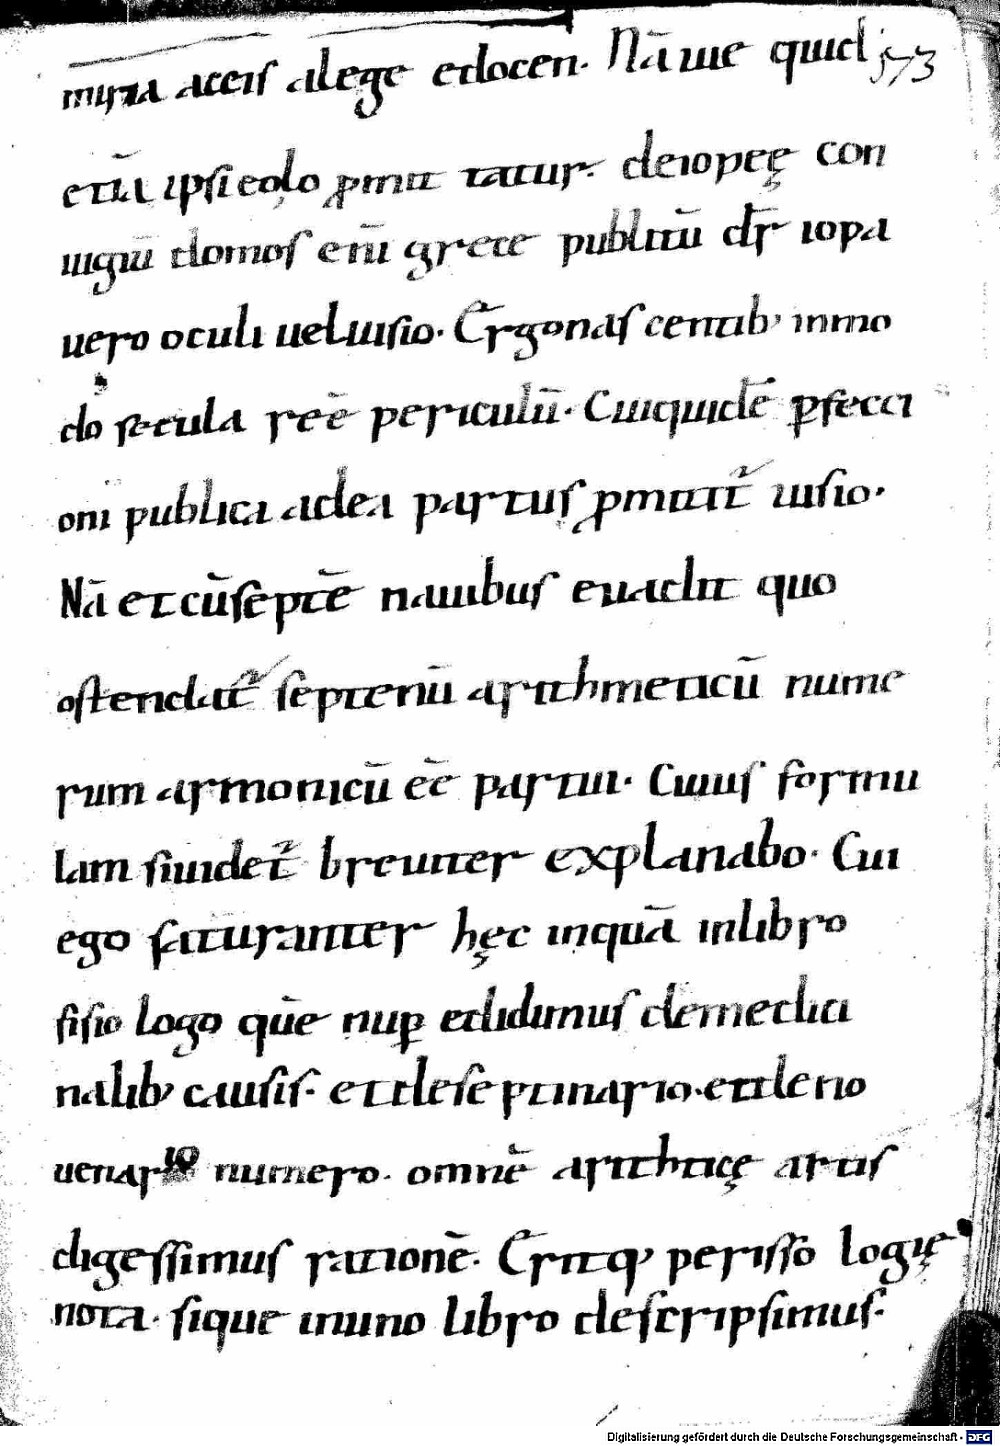 accis alege edocen. Nā me quid 573
etiā ipsi eolo ꝓmittatur. deiopeę con
iugiū domos eni grece publicū dr̄ iopa
uero oculi uel uisio. Ergo nas centib; inmo
do secula reē periculū. Cui quidē ꝑfecti
oni publica adea partus ꝓmittit̄ uisio.
Nā et cū septē nauibus euadit quo
ostendat̄ septenū arithmeticū nume
rum armonicū eē partui. Cuius formu
lam si uidet̄ breuiter explanabo. Cui
ego saturanter hęc inquā inlibro
fisio logo quē nuꝑ edidimus de medici
nalib; causis. et de septinario. et de no
uenario numero. omnē arithticę artis
digessimus rationē. Eritq; perisso logię
nota. si que inuno libro descripsimus.
Digitalisierung gefördert durch die Deutsche Forschungsgemeinschaft - DFG